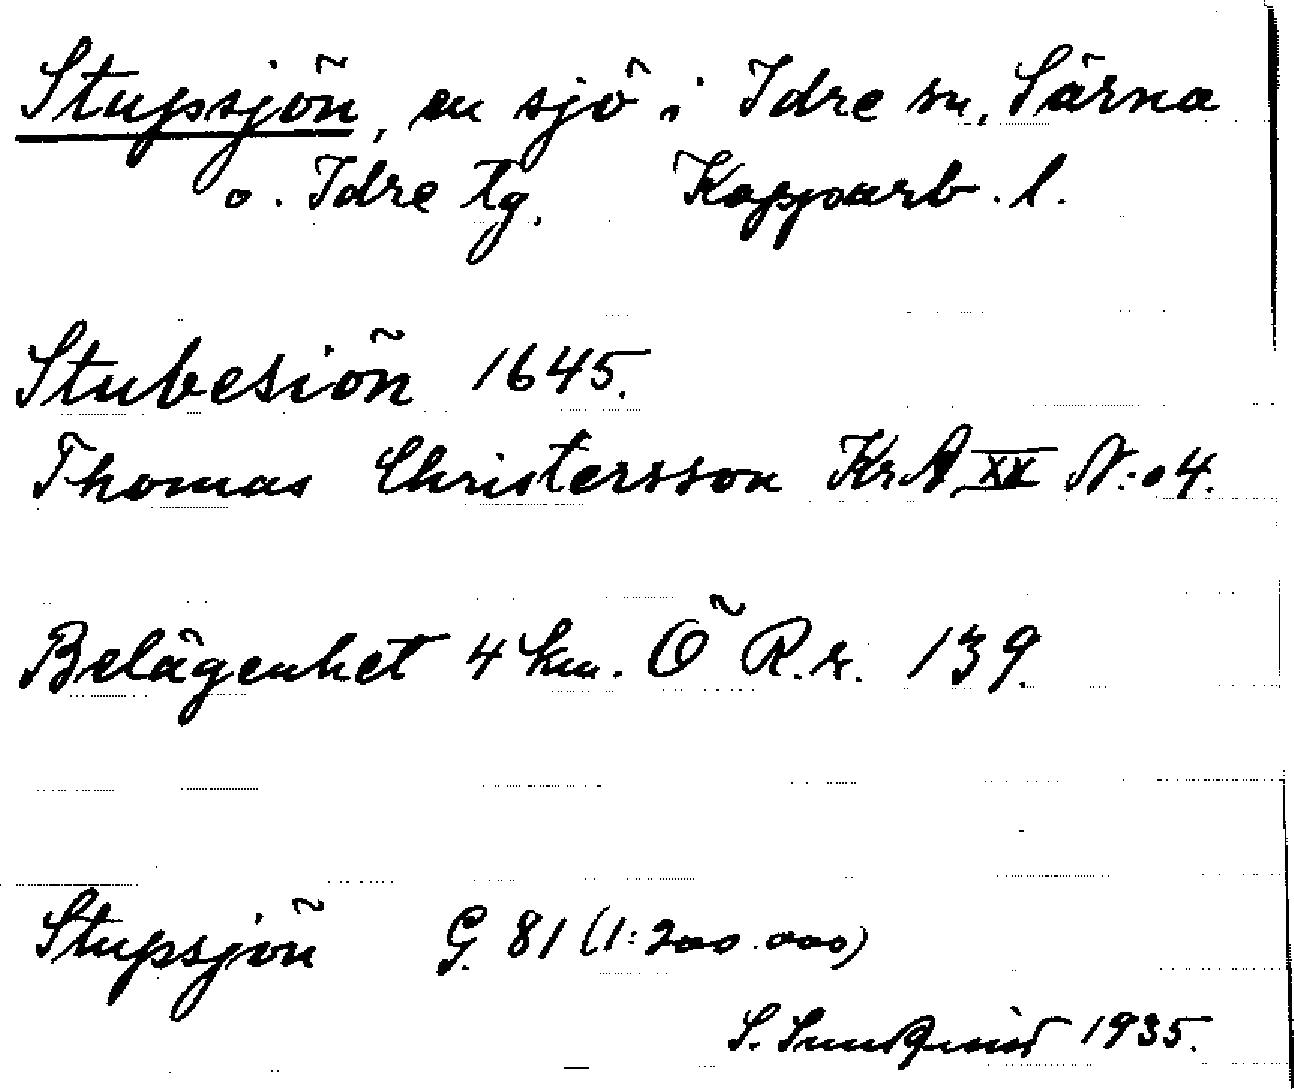 Stupsjön, en sjö i Idre sn, Särna
o. Idre tg. Kopparb. l.
Stubesiön 1645.
Thomas Christersson KrA XX N:o 4.
Belägenhet 4 km. Ö R.r. 139.
Stupsjön G. 81 (1:200.000)
S. Sundquist 1935.